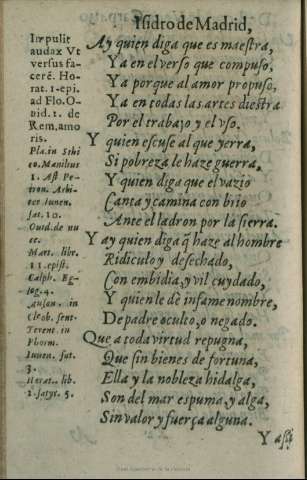 Isidro de Madrid,
Impulit
audax Vt
versus fa-
cerē. Ho-
rat. 1. epi.
ad Flo. O-
uid. 1. de
Rem. amo
ris.
Pla. in Sthi
co. Manibus
1. Ast Pe-
tron. Arbi-
ter Iunen.
sat. 10.
Ouid. de nu
ce.
Mart. libr.
11. epist.
Calph. Eg-
log. 4.
Auson. in
Cleob. sent.
Terent. in
Phorm.
Iuuen. sat.
3.
Horat. lib.
2. satyr. 5.
Ay quien diga que es maestra,
Ya en el verso que compuso,
Ya porque al amor propuso,
Ya en todas las artes diestra
Por el trabajo y el vso.
Y quien escuse al que yerra,
Si pobreza le haze guerra,
Y quien diga que el vazio
Canta y camina con brio
Ante el ladron por la sierra.
Y ay quien diga q̃ haze al hombre
Ridiculo y desechado,
Con embidia, y vil cuydado,
Y quien le dè infame nombre,
De padre oculto, o negado.
Que a toda virtud repugna,
Que sin bienes de fortuna,
Ella y la nobleza hidalga,
Son del mar espuma, y alga,
Sin valor y fuerça alguna.
Y assi